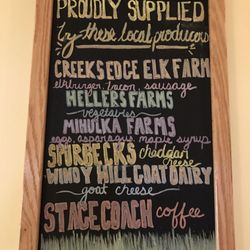 PROUDLY SUPPLIED
by these local producers
CREEKS EDGE ELK FARM
elk burger, bacon, sausage
HELLERS FARMS
vegetables
MIHULKA FARMS
eggs, asparagus, maple syrup
SMURBECKS cheddar cheese
WINDY HILL GOAT DAIRY
goat cheese
STAGECOACH coffee